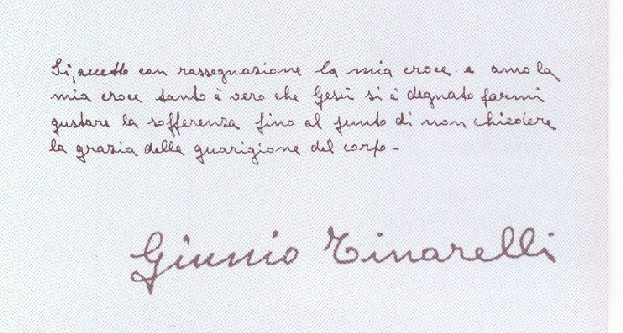 Si, accetto con rassegnazione la mia croce e amo la
mia croce tanto è vero che Gesù si è degnato farmi
gustare la sofferenza fino al punto di non chiedere
la grazia della guarigione del corpo -
Giunio Tinarelli